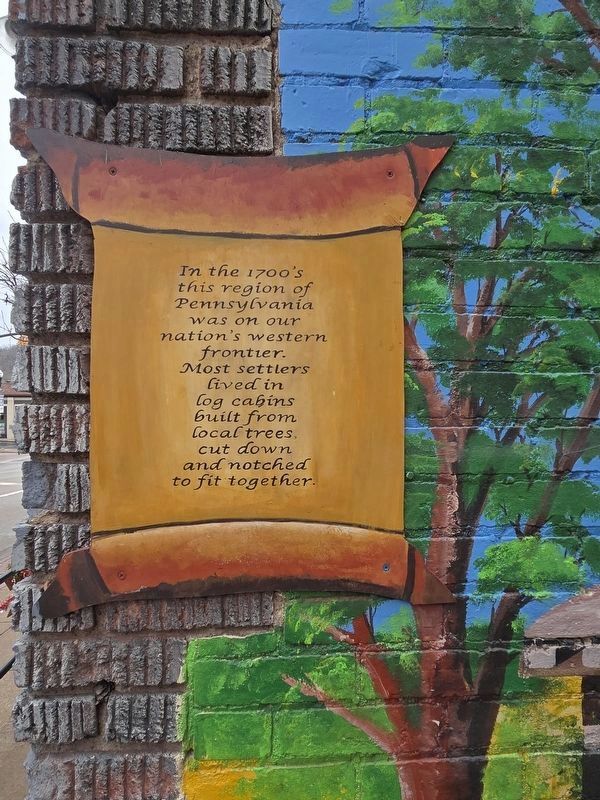 In the 1700's
this region of
Pennsylvania
was on our
nation's western
frontier.
Most settlers
lived in
log cabins
built from
local trees,
cut down
and notched
to fit together.